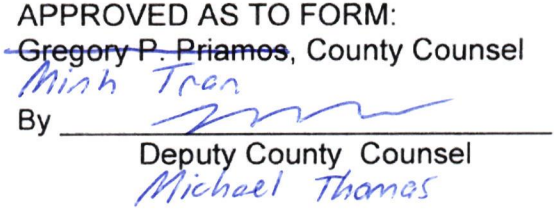 APPROVED AS TO FORM:
Gregory P. Priamos, County Counsel
Minh Tran
By
Deputy County Counsel
Michael Thomas